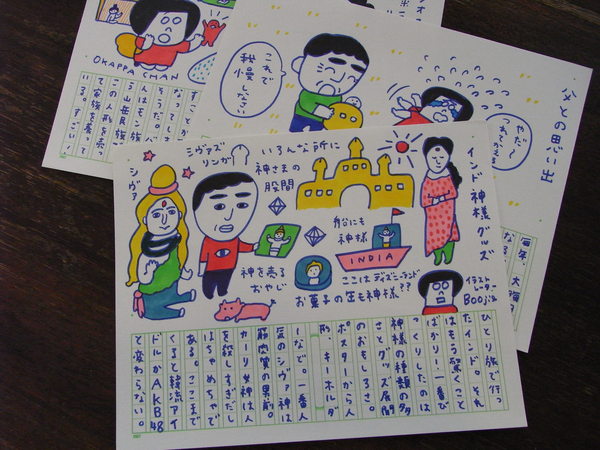 OKAPPA CHAN
なってしま
そうだ。
る山岳民族
この人形を売っ
て家族を養って
いる。すごい!
父との思い出
やだ〜
これで
我慢
しなさい
シヴァズ
リンガ
いろんな所に
神さまの
股間
インド神様グッズ
シヴァ
船にも
神様
INDIA
神を売る
おやじ
ここはディズニーランド
お菓子の缶も神様??
イラスト
レーター
ひとり旅で行っ
たインド。それ
はもう驚くこと
ばかり!一番び
っくりしたのは
神様の種類の多
さとグッズ展開
のおもしろさ。
ポスターから人
形、キーホルダ
ーなど。一番人
気のシヴァ神は
筋肉質の男前。
カーリー女神は人
を殺しすぎだし
はちゃめちゃで
ある。ここまで
くると韓流アイ
ドルかAKB48
と変わらない。